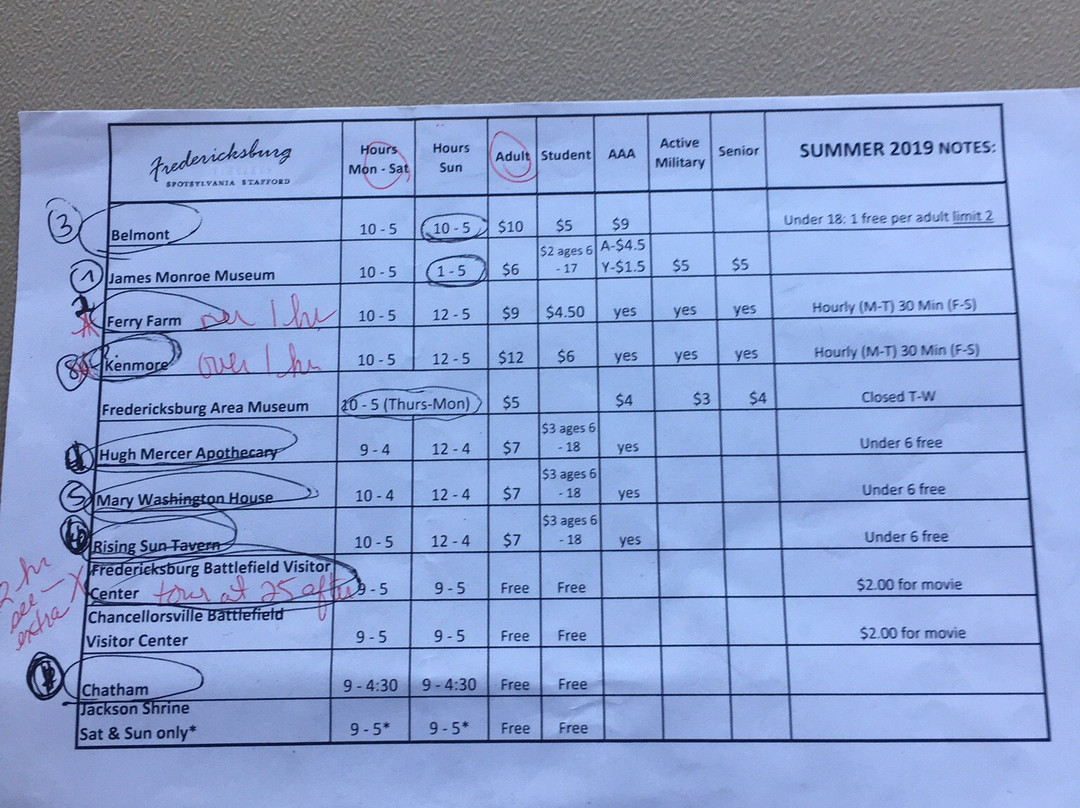 Fredericksburg
SPOTSYLVANIA STAFFORD
Hours Mon - Sat
Hours Sun
Adult
Student
AAA
Active Military
Senior
SUMMER 2019 NOTES:
3 Belmont 10 - 5 10 - 5 $10 $5 $9 Under 18: 1 free per adult limit 2
1 James Monroe Museum 10 - 5 1 - 5 $6 $2 ages 6 - 17 A-$4.5 Y-$1.5 $5 $5
Ferry Farm over 1 hr 10 - 5 12 - 5 $9 $4.50 yes yes yes Hourly (M-T) 30 Min (F-S)
8 Kenmore over 1 hr 10 - 5 12 - 5 $12 $6 yes yes yes Hourly (M-T) 30 Min (F-S)
Fredericksburg Area Museum 10 - 5 (Thurs-Mon) $5 $4 $3 $4 Closed T-W
Hugh Mercer Apothecary 9 - 4 12 - 4 $7 $3 ages 6 - 18 yes Under 6 free
5 Mary Washington House 10 - 4 12 - 4 $7 $3 ages 6 - 18 yes Under 6 free
Rising Sun Tavern 10 - 5 12 - 4 $7 $3 ages 6 - 18 yes Under 6 free
2 hr see extra X
Fredericksburg Battlefield Visitor Center tour at 25 after 9 - 5 9 - 5 Free Free $2.00 for movie
Chancellorsville Battlefield Visitor Center 9 - 5 9 - 5 Free Free $2.00 for movie
Chatham 9 - 4:30 9 - 4:30 Free Free
Jackson Shrine Sat & Sun only* 9 - 5* 9 - 5* Free Free